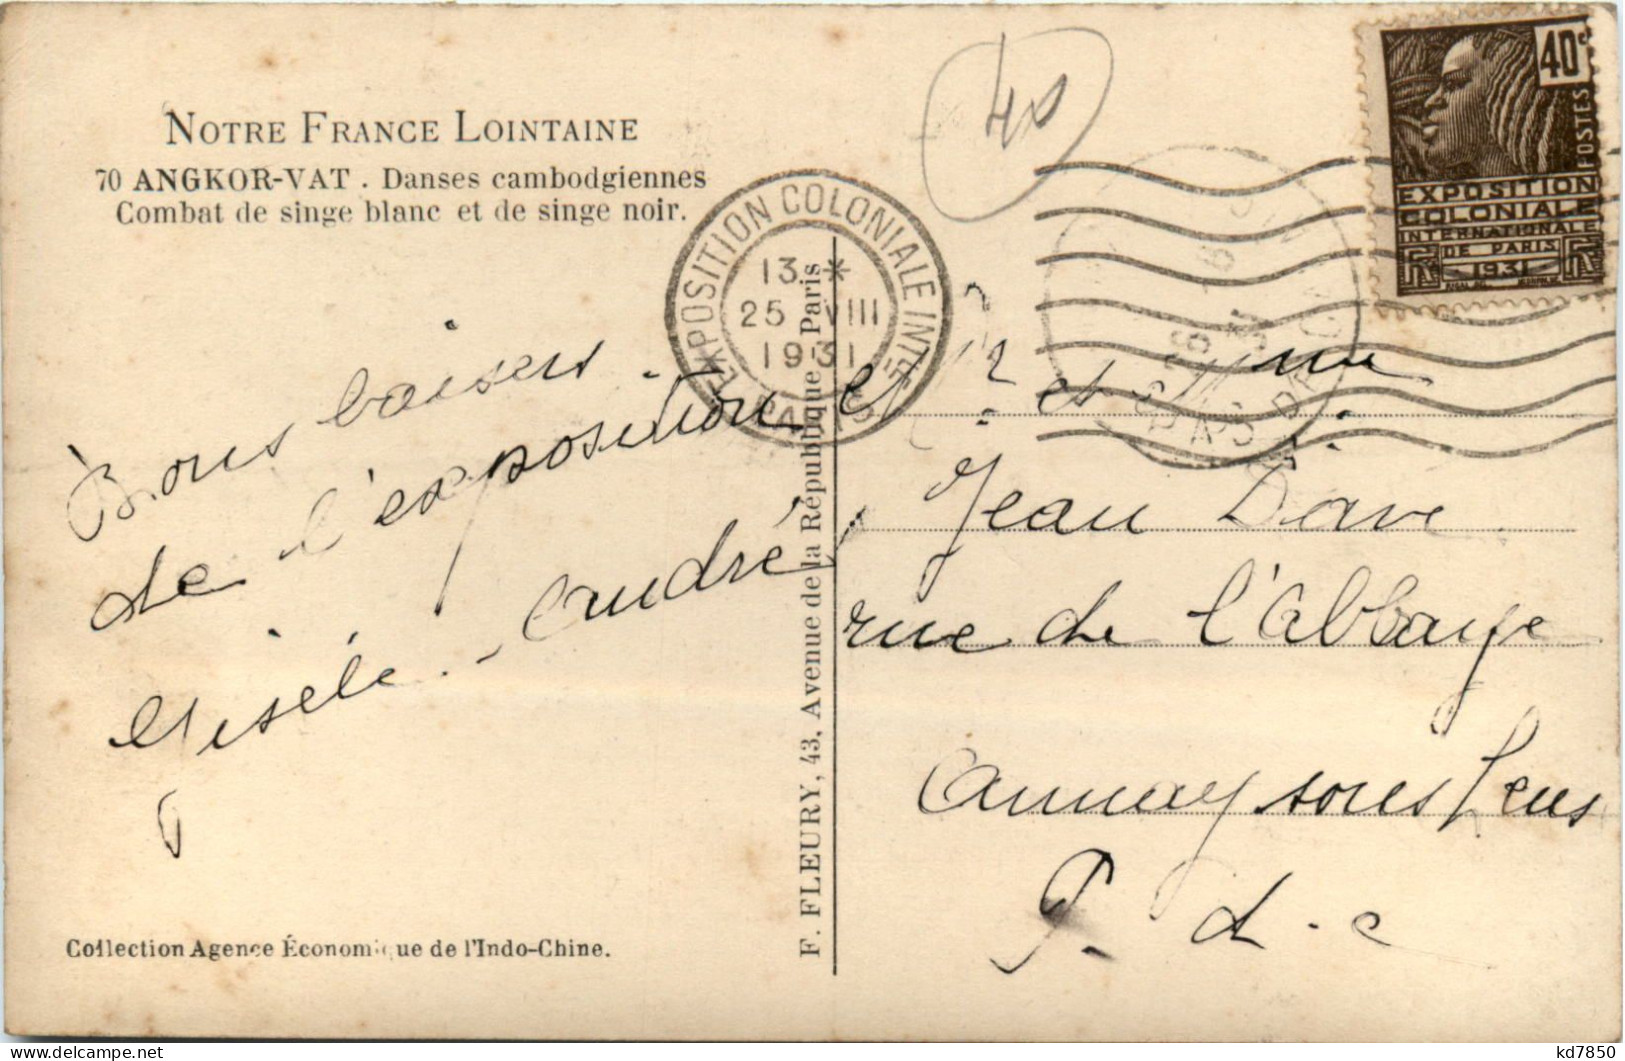 NOTRE FRANCE LOINTAINE
70 ANGKOR-VAT . Danses cambodgiennes
Combat de singe blanc et de singe noir.
40
EXPOSITION COLONIALE INTLE
13 *
25 VIII
1931
PARIS
40c
POSTES
EXPOSITION
COLONIALE
INTERNATIONALE
DE PARIS
1931
PAS DE CALAIS
Bons baisers
de l'exposition
Gisèle - André
F. FLEURY, 43, Avenue de la République Paris
et Mme
Jean Dave
rue de l'abbaye
Annay sous Lens
P. d. c
Collection Agence Économique de l'Indo-Chine.
kd7850